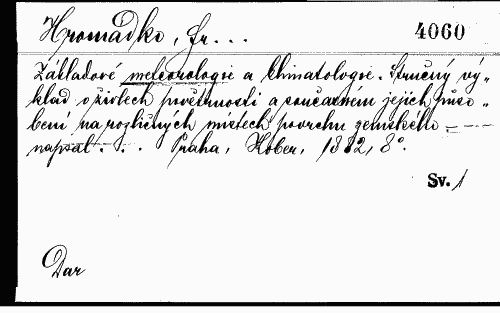 Hromádko, Fr...
4060
Základové meteorologie a klimatologie. Stručný vý-
klad o živlech povětrnosti a současném jejich půso-
bení na rozličných místech povrchu zemského.
napsal... Praha, Kober, 1882, 8°.
Sv. 1
Dar